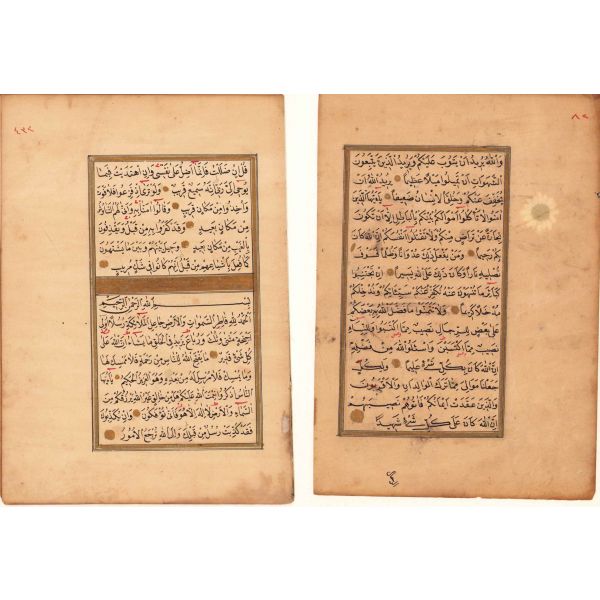 ٨٢
وَاللّٰهُ يُرِيدُ اَنْ يَتُوبَ عَلَيْكُمْ وَيُرِيدُ الَّذِينَ يَتَّبِعُونَ
الشَّهَوَاتِ اَنْ تَمِيلُوا مَيْلًا عَظِيمًا يُرِيدُ اللّٰهُ اَنْ
يُخَفِّفَ عَنْكُمْ وَخُلِقَ الْاِنْسَانُ ضَعِيفًا يَا اَيُّهَا الَّذِينَ
اٰمَنُوا لَا تَأْكُلُوا اَمْوَالَكُمْ بَيْنَكُمْ بِالْبَاطِلِ اِلَّا اَنْ تَكُونَ
تِجَارَةً عَنْ تَرَاضٍ مِنْكُمْ وَلَا تَقْتُلُوا اَنْفُسَكُمْ اِنَّ اللّٰهَ كَانَ
بِكُمْ رَحِيمًا وَمَنْ يَفْعَلْ ذٰلِكَ عُدْوَانًا وَظُلْمًا فَسَوْفَ
نُصْلِيهِ نَارًا وَكَانَ ذٰلِكَ عَلَى اللّٰهِ يَسِيرًا اِنْ تَجْتَنِبُوا
كَبَائِرَ مَا تُنْهَوْنَ عَنْهُ نُكَفِّرْ عَنْكُمْ سَيِّئَاتِكُمْ وَنُدْخِلْكُمْ
مُدْخَلًا كَرِيمًا وَلَا تَتَمَنَّوْا مَا فَضَّلَ اللّٰهُ بِهِ بَعْضَكُمْ
عَلٰى بَعْضٍ لِلرِّجَالِ نَصِيبٌ مِمَّا اكْتَسَبُوا وَلِلنِّسَاءِ
نَصِيبٌ مِمَّا اكْتَسَبْنَ وَاسْئَلُوا اللّٰهَ مِنْ فَضْلِهِ
اِنَّ اللّٰهَ كَانَ بِكُلِّ شَيْءٍ عَلِيمًا وَلِكُلٍّ
جَعَلْنَا مَوَالِيَ مِمَّا تَرَكَ الْوَالِدَانِ وَالْاَقْرَبُونَ
وَالَّذِينَ عَقَدَتْ اَيْمَانُكُمْ فَاٰتُوهُمْ نَصِيبَهُمْ
اِنَّ اللّٰهَ كَانَ عَلٰى كُلِّ شَيْءٍ شَهِيدًا
٤٣٢
قُلْ اِنْ ضَلَلْتُ فَاِنَّمَا اَضِلُّ عَلٰى نَفْسِي وَاِنِ اهْتَدَيْتُ فَبِمَا
يُوحِي اِلَيَّ رَبِّي اِنَّهُ سَمِيعٌ قَرِيبٌ وَلَوْ تَرٰى اِذْ فَزِعُوا فَلَا فَوْتَ
وَاُخِذُوا مِنْ مَكَانٍ قَرِيبٍ وَقَالُوا اٰمَنَّا بِهِ وَاَنّٰى لَهُمُ التَّنَاوُشُ
مِنْ مَكَانٍ بَعِيدٍ وَقَدْ كَفَرُوا بِهِ مِنْ قَبْلُ وَيَقْذِفُونَ
بِالْغَيْبِ مِنْ مَكَانٍ بَعِيدٍ وَحِيلَ بَيْنَهُمْ وَبَيْنَ مَا يَشْتَهُونَ
كَمَا فُعِلَ بِاَشْيَاعِهِمْ مِنْ قَبْلُ اِنَّهُمْ كَانُوا فِي شَكٍّ مُرِيبٍ
بِسْمِ اللّٰهِ الرَّحْمٰنِ الرَّحِيمِ
اَلْحَمْدُ لِلّٰهِ فَاطِرِ السَّمٰوَاتِ وَالْاَرْضِ جَاعِلِ الْمَلٰئِكَةِ رُسُلًا اُولِي
اَجْنِحَةٍ مَثْنٰى وَثُلٰثَ وَرُبَاعَ يَزِيدُ فِي الْخَلْقِ مَا يَشَاءُ اِنَّ اللّٰهَ عَلٰى
كُلِّ شَيْءٍ قَدِيرٌ مَا يَفْتَحِ اللّٰهُ لِلنَّاسِ مِنْ رَحْمَةٍ فَلَا مُمْسِكَ لَهَا
وَمَا يُمْسِكْ فَلَا مُرْسِلَ لَهُ مِنْ بَعْدِهِ وَهُوَ الْعَزِيزُ الْحَكِيمُ يَا اَيُّهَا
النَّاسُ اذْكُرُوا نِعْمَتَ اللّٰهِ عَلَيْكُمْ هَلْ مِنْ خَالِقٍ غَيْرُ اللّٰهِ يَرْزُقُكُمْ مِنَ
السَّمَاءِ وَالْاَرْضِ لَا اِلٰهَ اِلَّا هُوَ فَاَنّٰى تُؤْفَكُونَ وَاِنْ يُكَذِّبُوكَ
فَقَدْ كُذِّبَتْ رُسُلٌ مِنْ قَبْلِكَ وَاِلَى اللّٰهِ تُرْجَعُ الْاُمُورُ